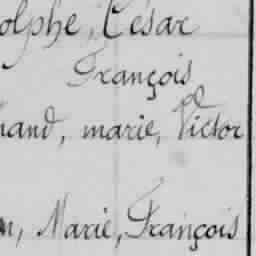 olphe, César
François
nand, marie, Victor
n, Marie, François